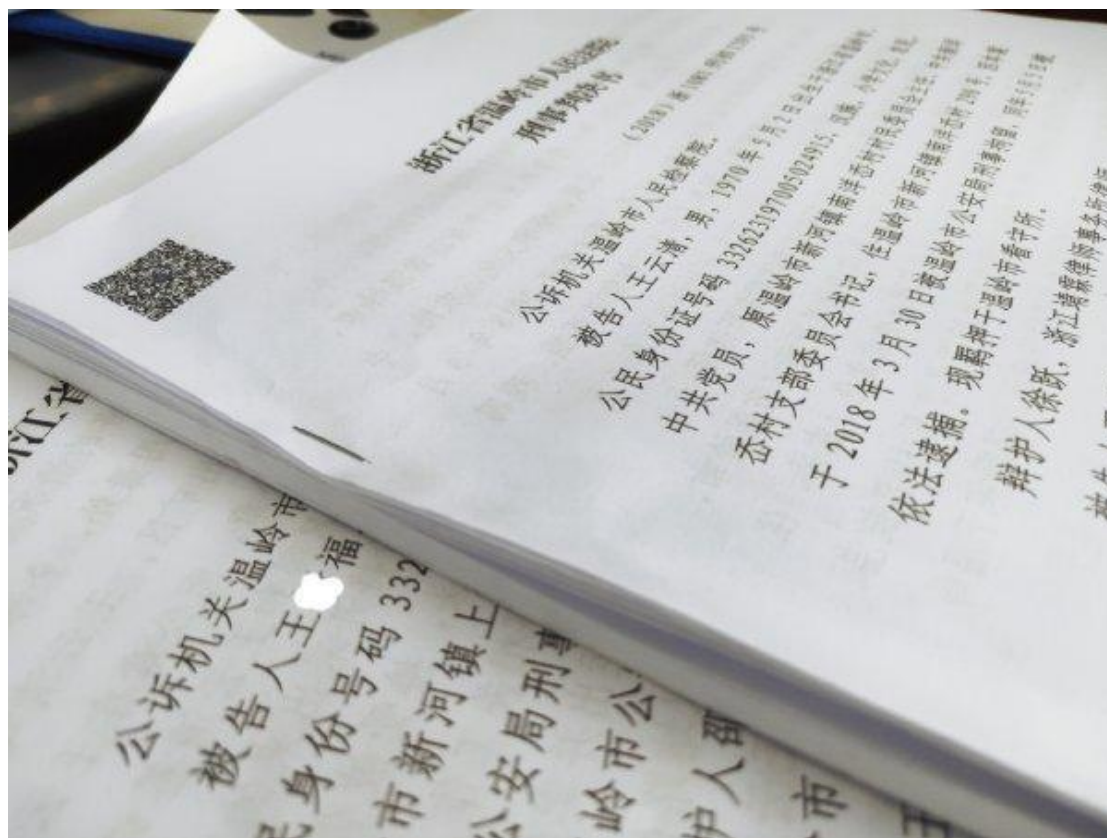 浙江省温岭市人民法院
刑事判决书
公诉机关温岭市人民检察院。
被告人王云清,男,1970年5月2日出生于浙江省温岭市,
公民身份证号码332623197005024915,汉族,小学文化,
中共党员,原温岭市新河镇南洋岙村村民委员会主任、中共南洋
岙村支部委员会书记,住温岭市新河镇南洋岙村
于2018年3月30日被温岭市公安局刑事拘留,同年5月5日被
依法逮捕。现羁押于温岭市看守所。
辩护人徐跃,浙江 律师事务所律师
被告人王
浙江省
公诉机关温岭市
被告人王 福
民身份号码332
市新河镇上
公安局刑事
岭市公
护人
市
于